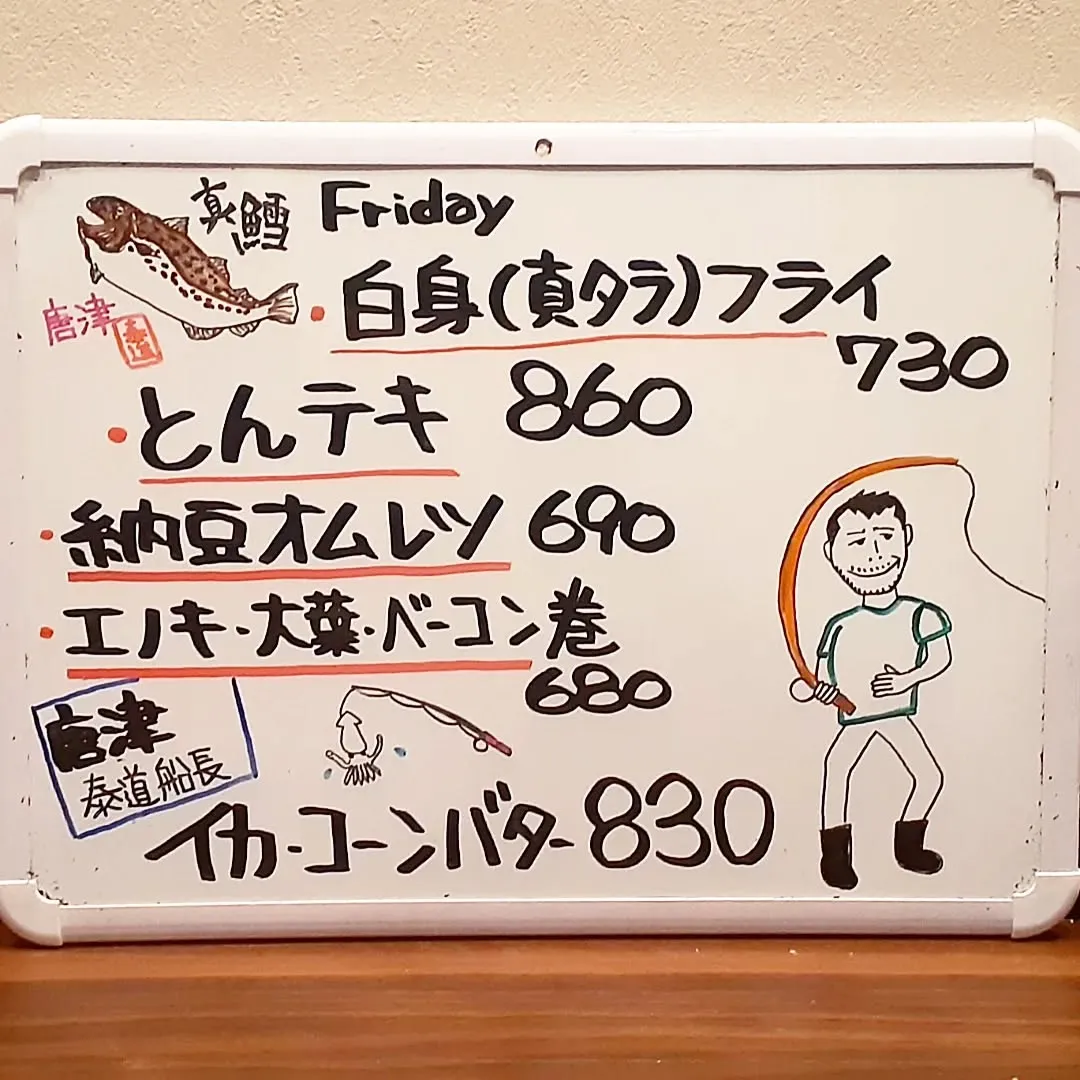 真鱈 Friday
唐津
泰道
・白身(真タラ)フライ
730
・とんテキ 860
・納豆オムレツ 690
・エノキ・大葉・ベーコン巻
680
唐津
泰道船長
イカ・コーンバター 830